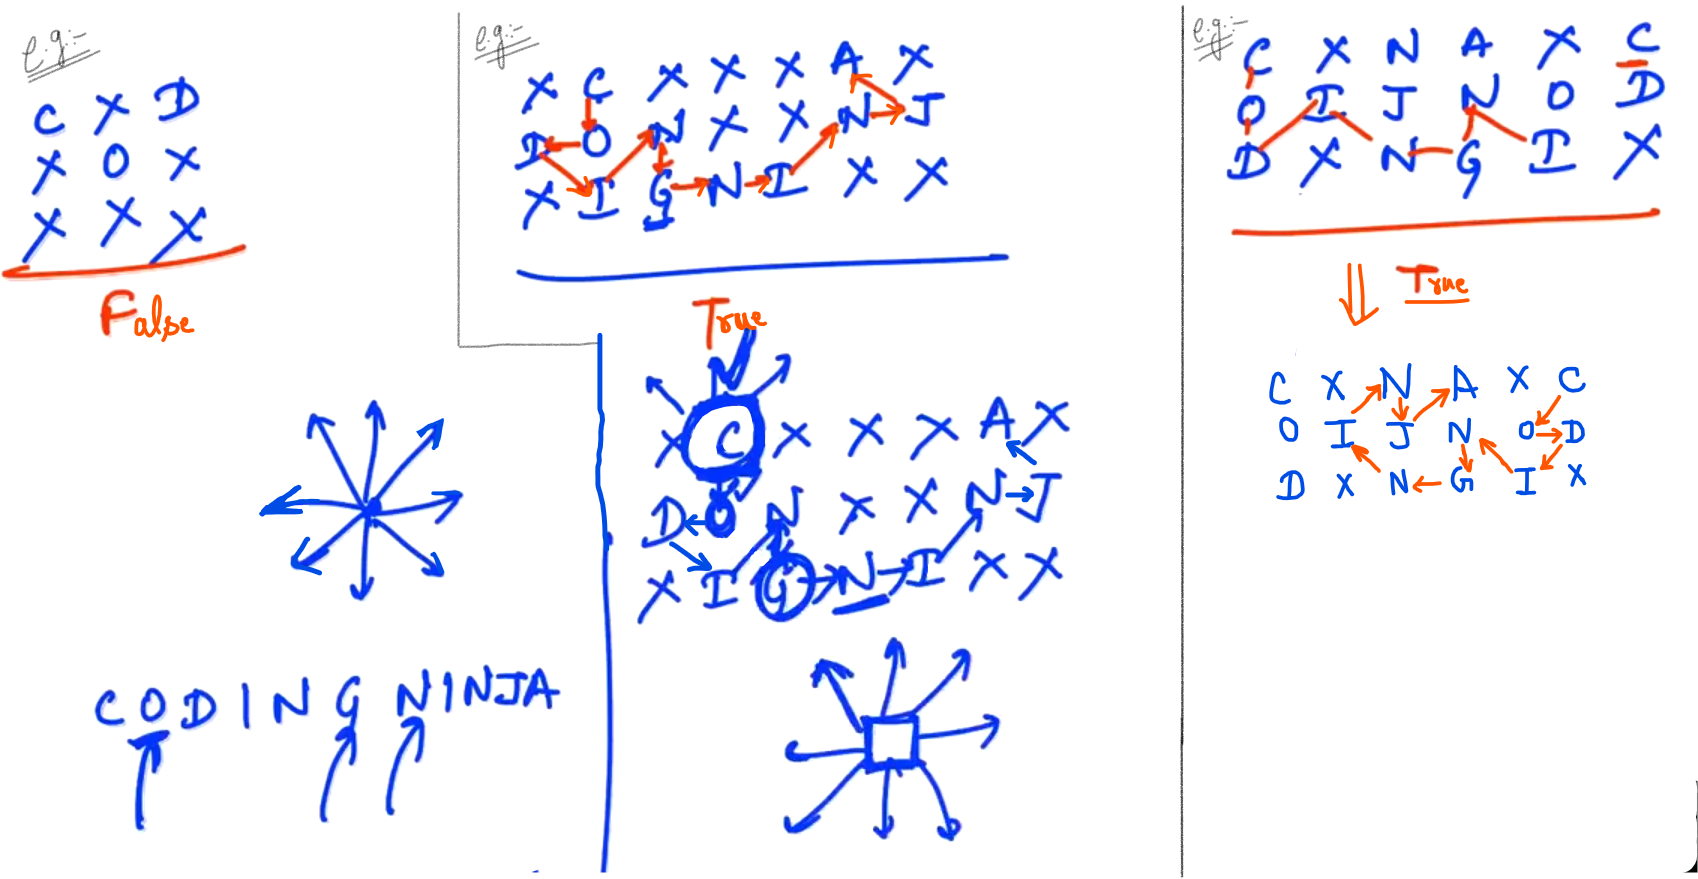 e.g:-
C X D
X O X
X X X
False
e.g:-
X C X X X A X
D O N X X N J
X I G N I X X
True
X C X X X A X
D O N X X N J
X I G N I X X
CODING NINJA
e.g:-
C X N A X C
O I J N O D
D X N G I X
True
C X N A X C
O I J N O D
D X N G I X